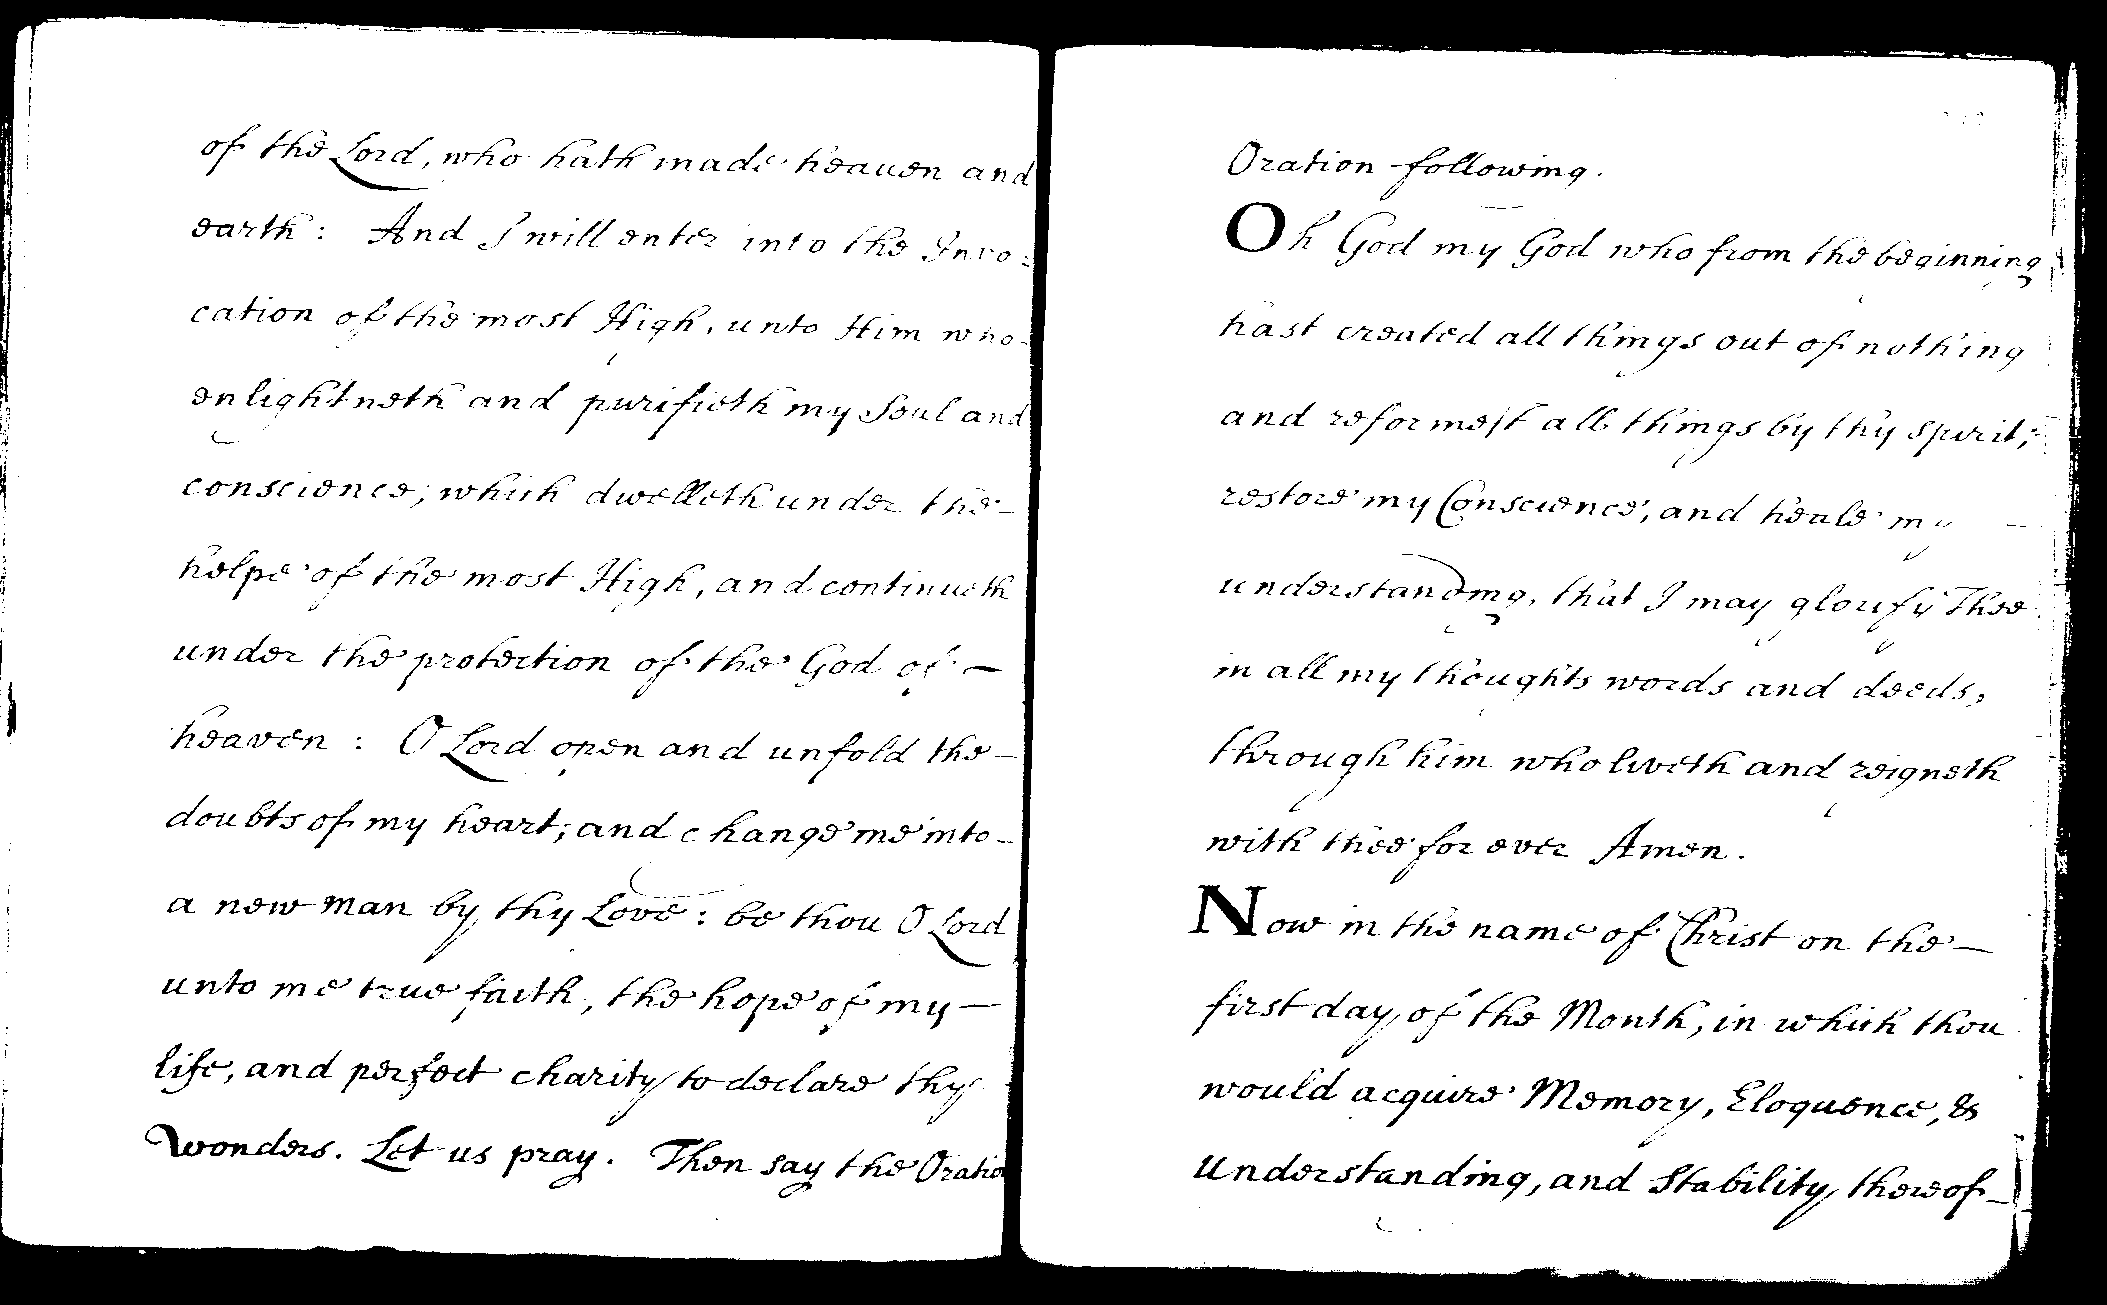 of the Lord, who hath made heaven and
earth : And I will enter into the Invo:
cation of the most High, unto Him who
enlightneth and purifieth my Soul and
conscience; which dwelleth under the-
helpe of the most High, and continueth
under the protection of the God of -
heaven : O Lord open and unfold the -
doubts of my heart; and change me into -
a new man by thy Love : be thou O Lord
unto me true faith, the hope of my -
life, and perfect charity to declare thy
Wonders. Let us pray. Then say the Oratio
Oration following.
Oh God my God who from the beginning
hast created all things out of nothing
and reformest all things by thy spirit;
restore my Conscience, and heale my
understanding, that I may glorify Thee
in all my thoughts words and deeds,
through him who liveth and reigneth
with thee for ever Amen.
Now in the name of Christ on the -
first day of the Month, in which thou
would acquire Memory, Eloquence, &
understanding, and Stability thereof -